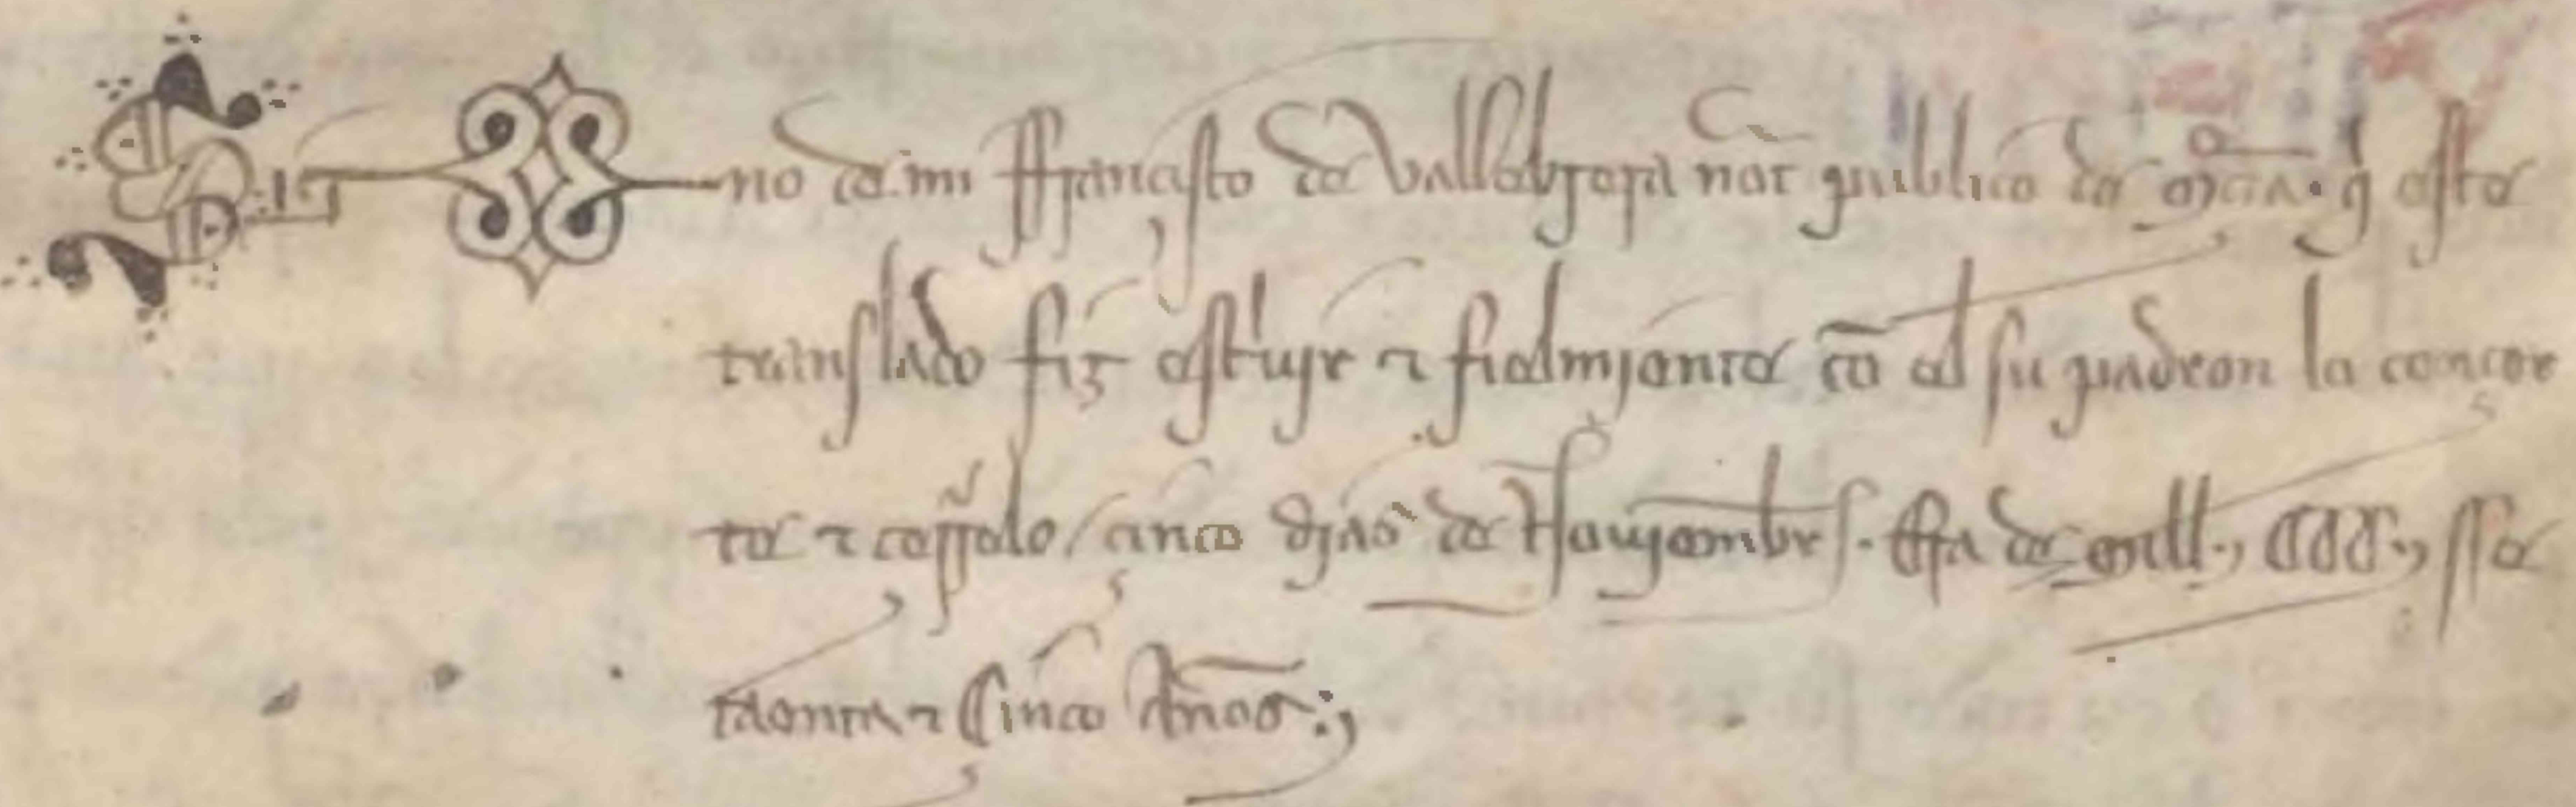 Sig no de mi ffrancisco de Vallebrera not publico de Murcia . q este
translado fiz escriujr ⁊ fielmjente cō el su padron la concer
te ⁊ corregilo / cinco djas de Nouyembre . Era de mill , CCC , sse
taenta ⁊ Cinco Annos :,